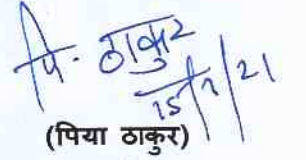 पि. ठाकुर
15/7/21
(पिया ठाकुर)